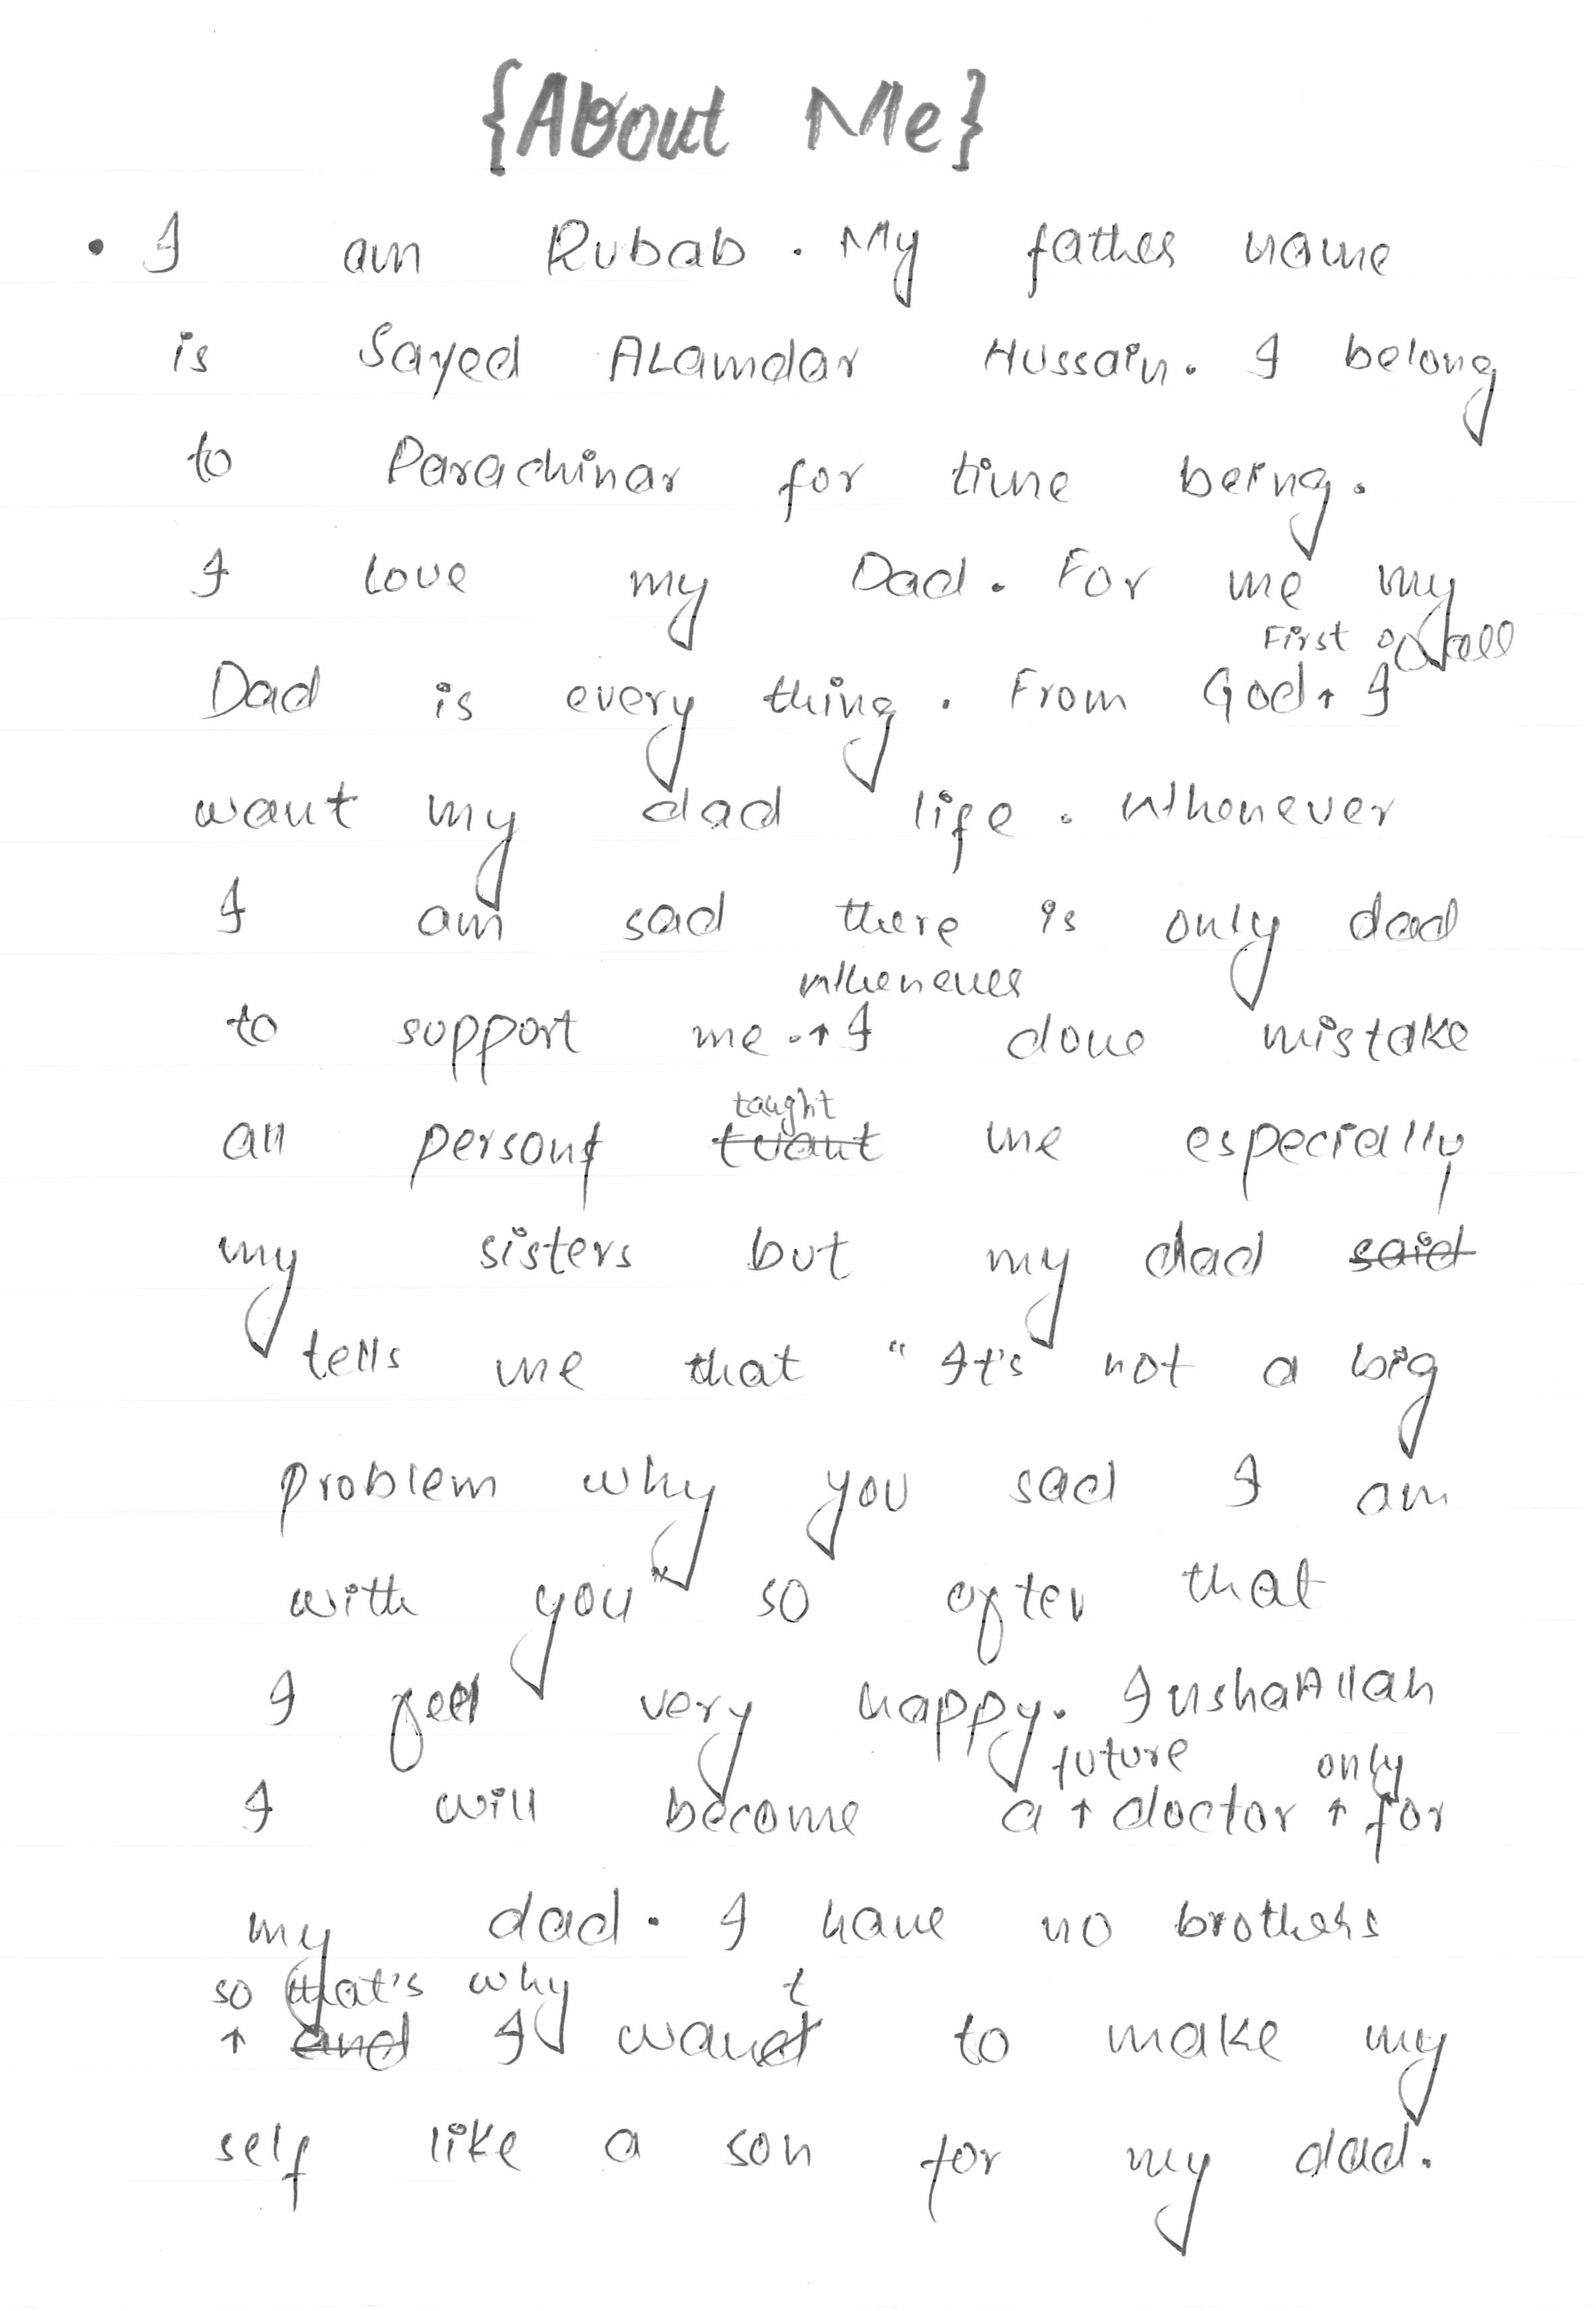 {About Me}
• I am Rubab. My father name
is Sayed ALamdar Hussain. I belong
to Parachinar for time being.
I love my Dad. For me my
First of all
Dad is every thing. From God↑ I
want my dad life. Whenever
I am sad there is only dad
whenever
to support me.↑ I done mistake
taught
all persons me especially
my sisters but my dad said
tells me that "It's not a big
problem why you sad I am
with you" so after that
I feel very happy. InshaAllah
future only
I will become a ↑ doctor ↑ for
my dad. I have no brothers
so that's why t
↑ and I want to make my
self like a son for my dad.